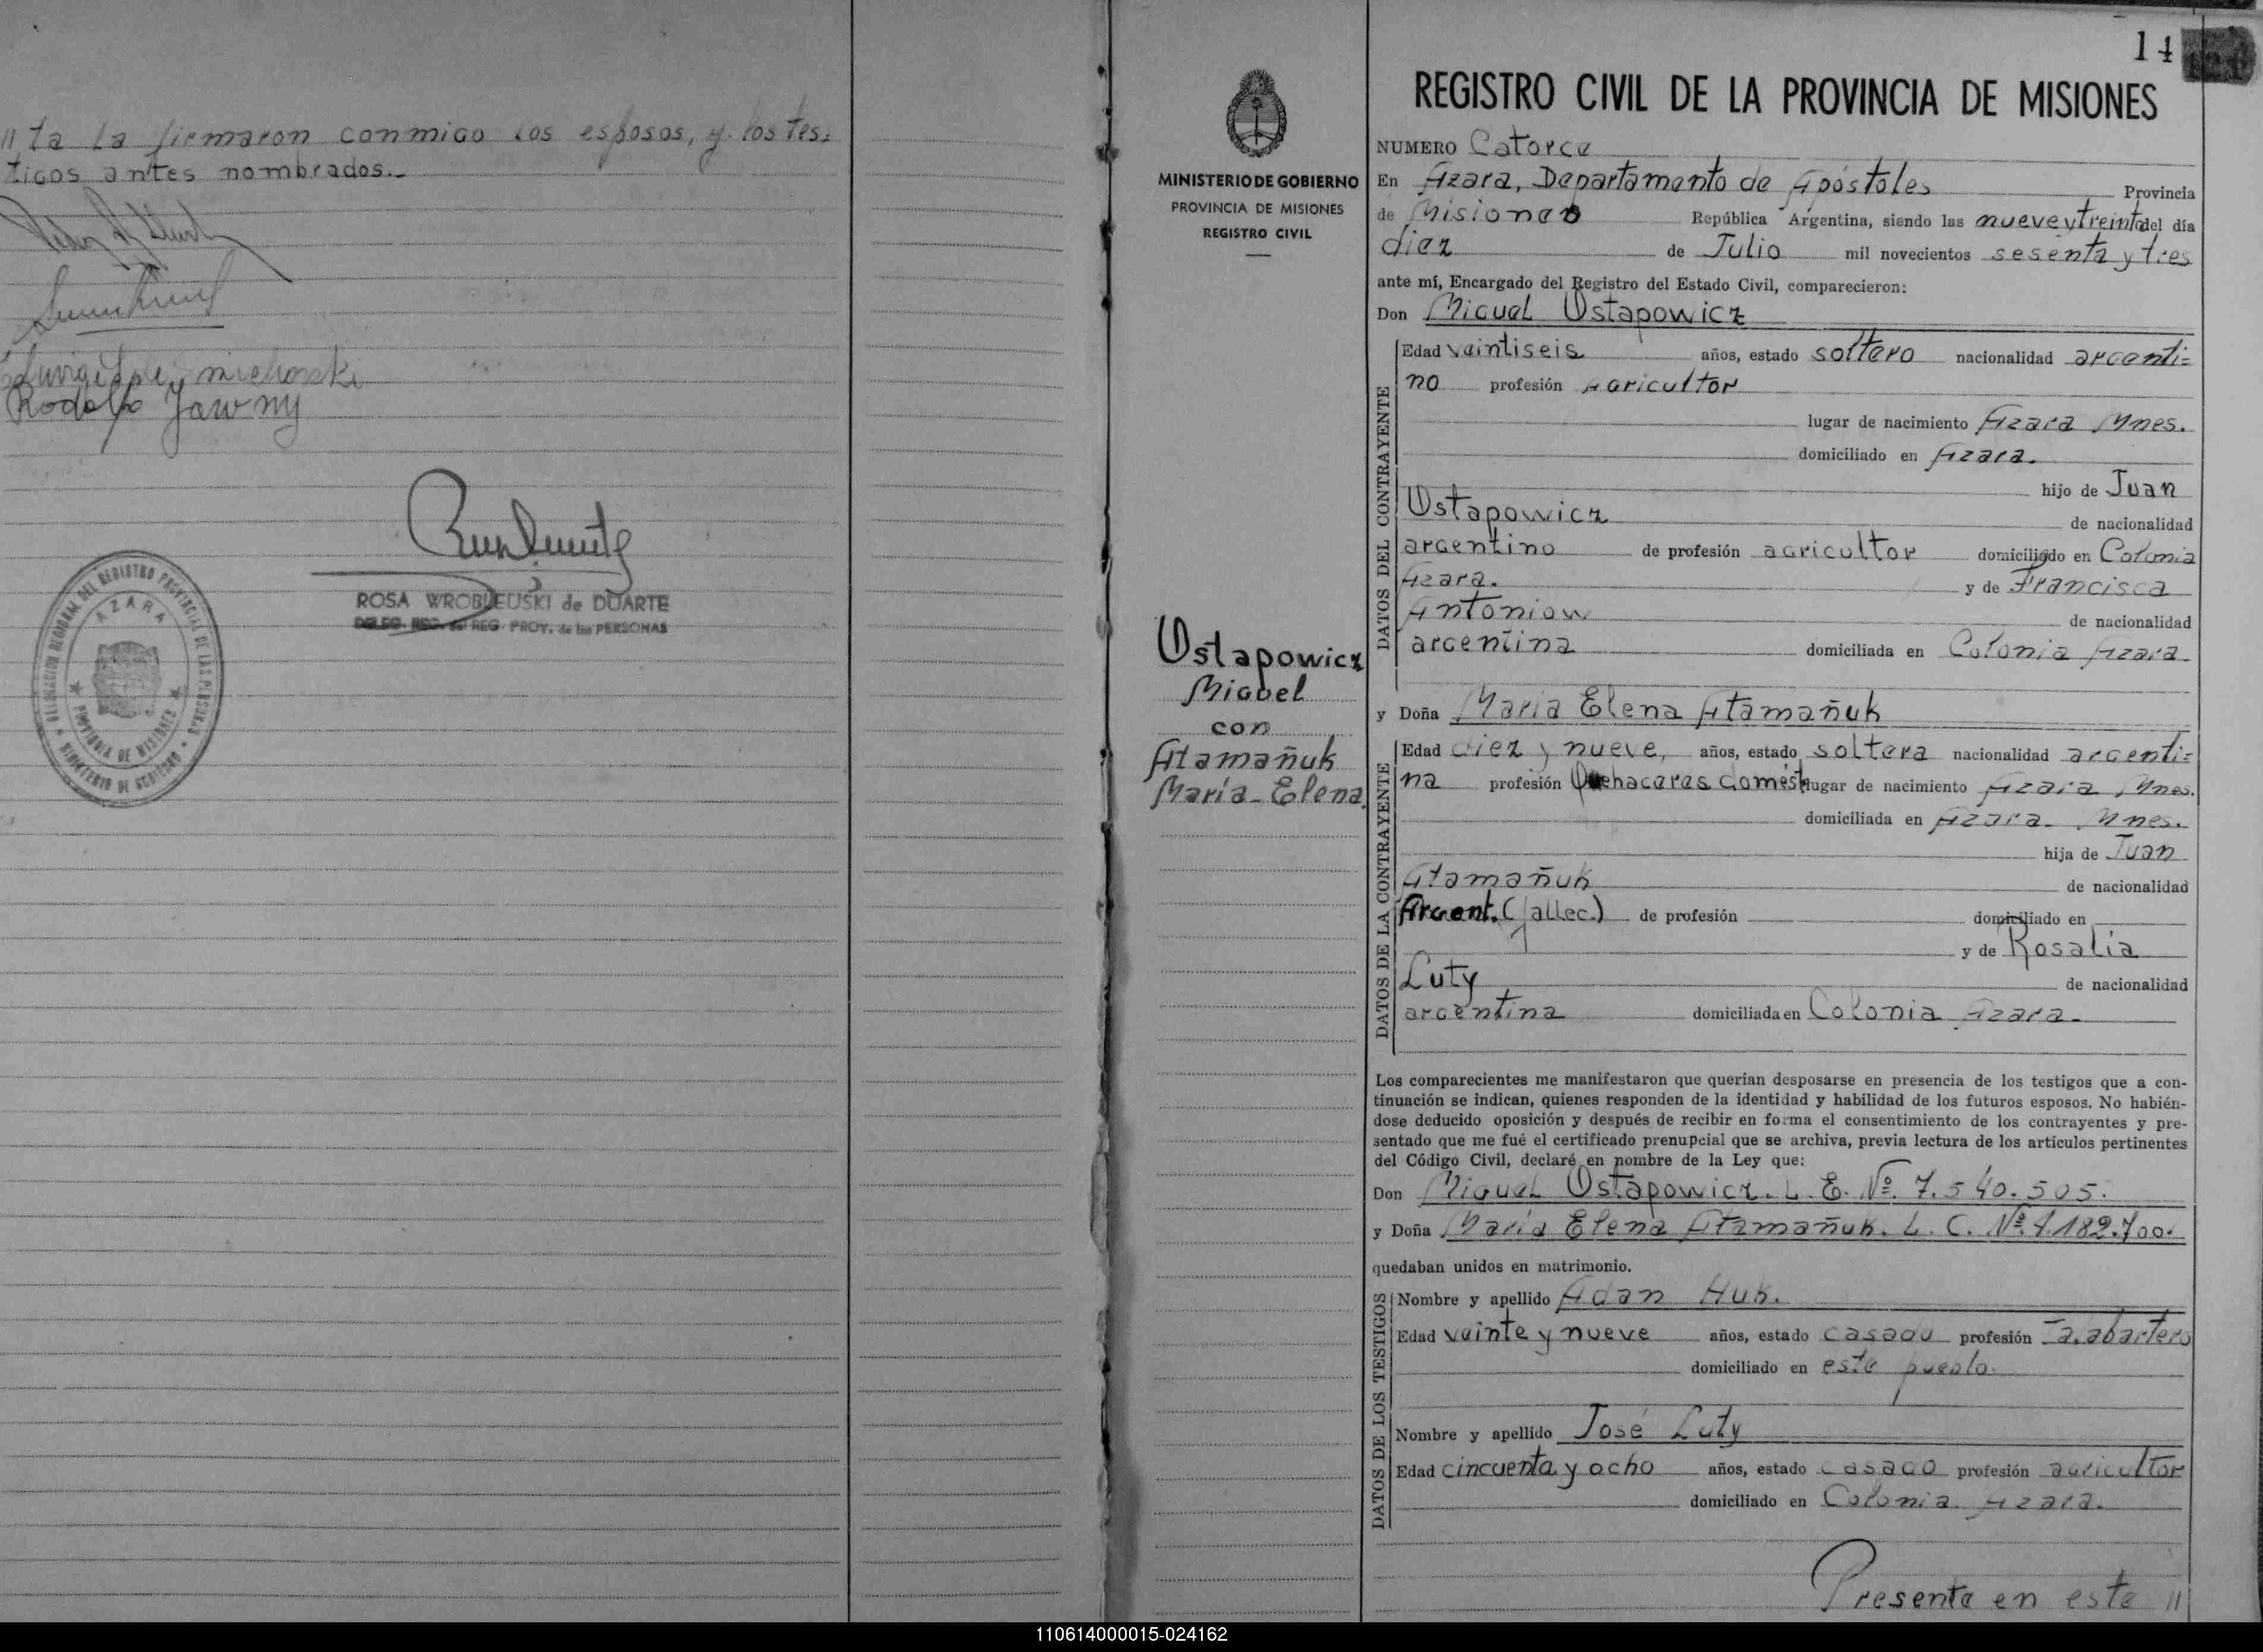 // ta la firmaron conmigo los esposos, y los tes-
tigos antes nombrados.-
Rodolfo Jawny
ROSA WROBLEUSKI de DUARTE
DELEG. REG. del REG. PROV. de las PERSONAS
DELEGACION REGIONAL DEL REGISTRO PROVINCIAL DE LAS PERSONAS
AZARA
PROVINCIA DE MISIONES
MINISTERIO DE GOBIERNO
MINISTERIO DE GOBIERNO
PROVINCIA DE MISIONES
REGISTRO CIVIL
Ostapowicz
Miguel
con
Atamañuk
María-Elena
14
REGISTRO CIVIL DE LA PROVINCIA DE MISIONES
NUMERO Catorce
En Azara, Departamento de Apóstoles Provincia
de Misiones República Argentina, siendo las nueve y treinta del día
diez de Julio mil novecientos sesenta y tres
ante mí, Encargado del Registro del Estado Civil, comparecieron:
Don Miguel Ostapowicz
DATOS DEL CONTRAYENTE
Edad veintiseis años, estado soltero nacionalidad argenti-
no profesión agricultor
lugar de nacimiento Azara Mnes.
domiciliado en Azara.
hijo de Juan
Ostapowicz de nacionalidad
argentino de profesión agricultor domiciliado en Colonia
Azara. y de Francisca
Antoniow de nacionalidad
argentina domiciliada en Colonia Azara
y Doña Maria Elena Atamañuk
DATOS DE LA CONTRAYENTE
Edad diez y nueve, años, estado soltera nacionalidad argenti-
na profesión Quehaceres domést. lugar de nacimiento Azara Mnes.
domiciliada en Azara. Mnes.
hija de Juan
Atamañuk de nacionalidad
Argent. (fallec.) de profesión domiciliado en
y de Rosalia
Luty de nacionalidad
argentina domiciliada en Colonia Azara.
Los comparecientes me manifestaron que querían desposarse en presencia de los testigos que a con-
tinuación se indican, quienes responden de la identidad y habilidad de los futuros esposos. No habién-
dose deducido oposición y después de recibir en forma el consentimiento de los contrayentes y pre-
sentado que me fué el certificado prenupcial que se archiva, previa lectura de los artículos pertinentes
del Código Civil, declaré en nombre de la Ley que:
Don Miguel Ostapowicz. L. E. Nº 7.540.505.
y Doña María Elena Atamañuk. L. C. Nº 4.182.700.
quedaban unidos en matrimonio.
DATOS DE LOS TESTIGOS
Nombre y apellido Adan Huk.
Edad veinte y nueve años, estado casado profesión Talabartero
domiciliado en este pueblo.
Nombre y apellido José Luty
Edad cincuenta y ocho años, estado casado profesión agricultor
domiciliado en Colonia Azara.
Presente en este //
110614000015-024162